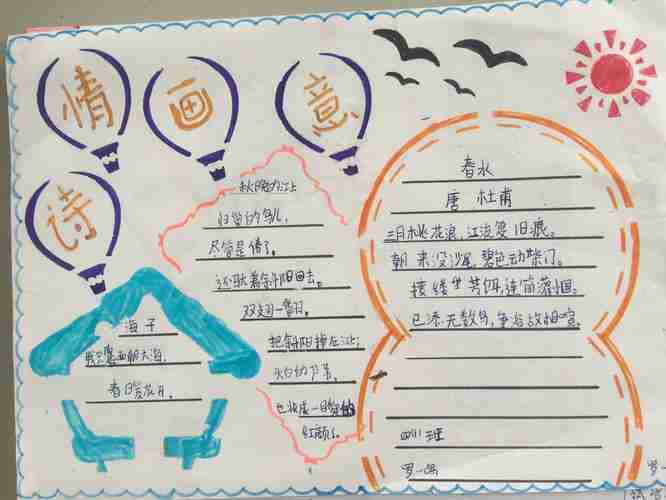 诗
情
画
意
海子
我只愿面朝大海,
春暖花开。
秋晚的江上
归巢的鸟儿,
尽管是倦了,
还驮着斜阳回去。
双翅一翻,
把斜阳掉在江上;
头白的芦苇,
也妆成一瞬的
红颜了。
春水
唐 杜甫
三月桃花浪,江流复旧痕。
朝来没沙尾,碧色动柴门。
接缕垂芳饵,连筒灌小园。
已添无数鸟,争浴故相喧。
罗一